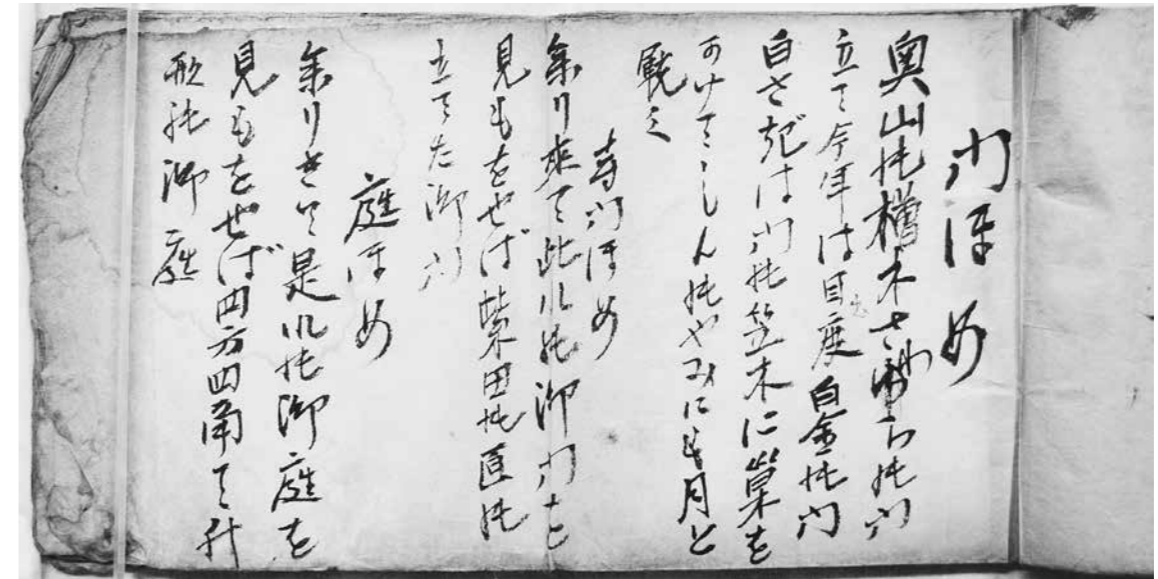 門ほめ
奥山の檜木さわらの門
立て今年は目出度白金の門
白さぎは門の笠木に巣を
かけてこしんのやみにも月と
寺門ほめ
参り来て此れの御門を
見もをせば の匠の
立てた御門
庭ほめ
参りきて是れの御庭を
見もをせば四方四角て升
形の御庭